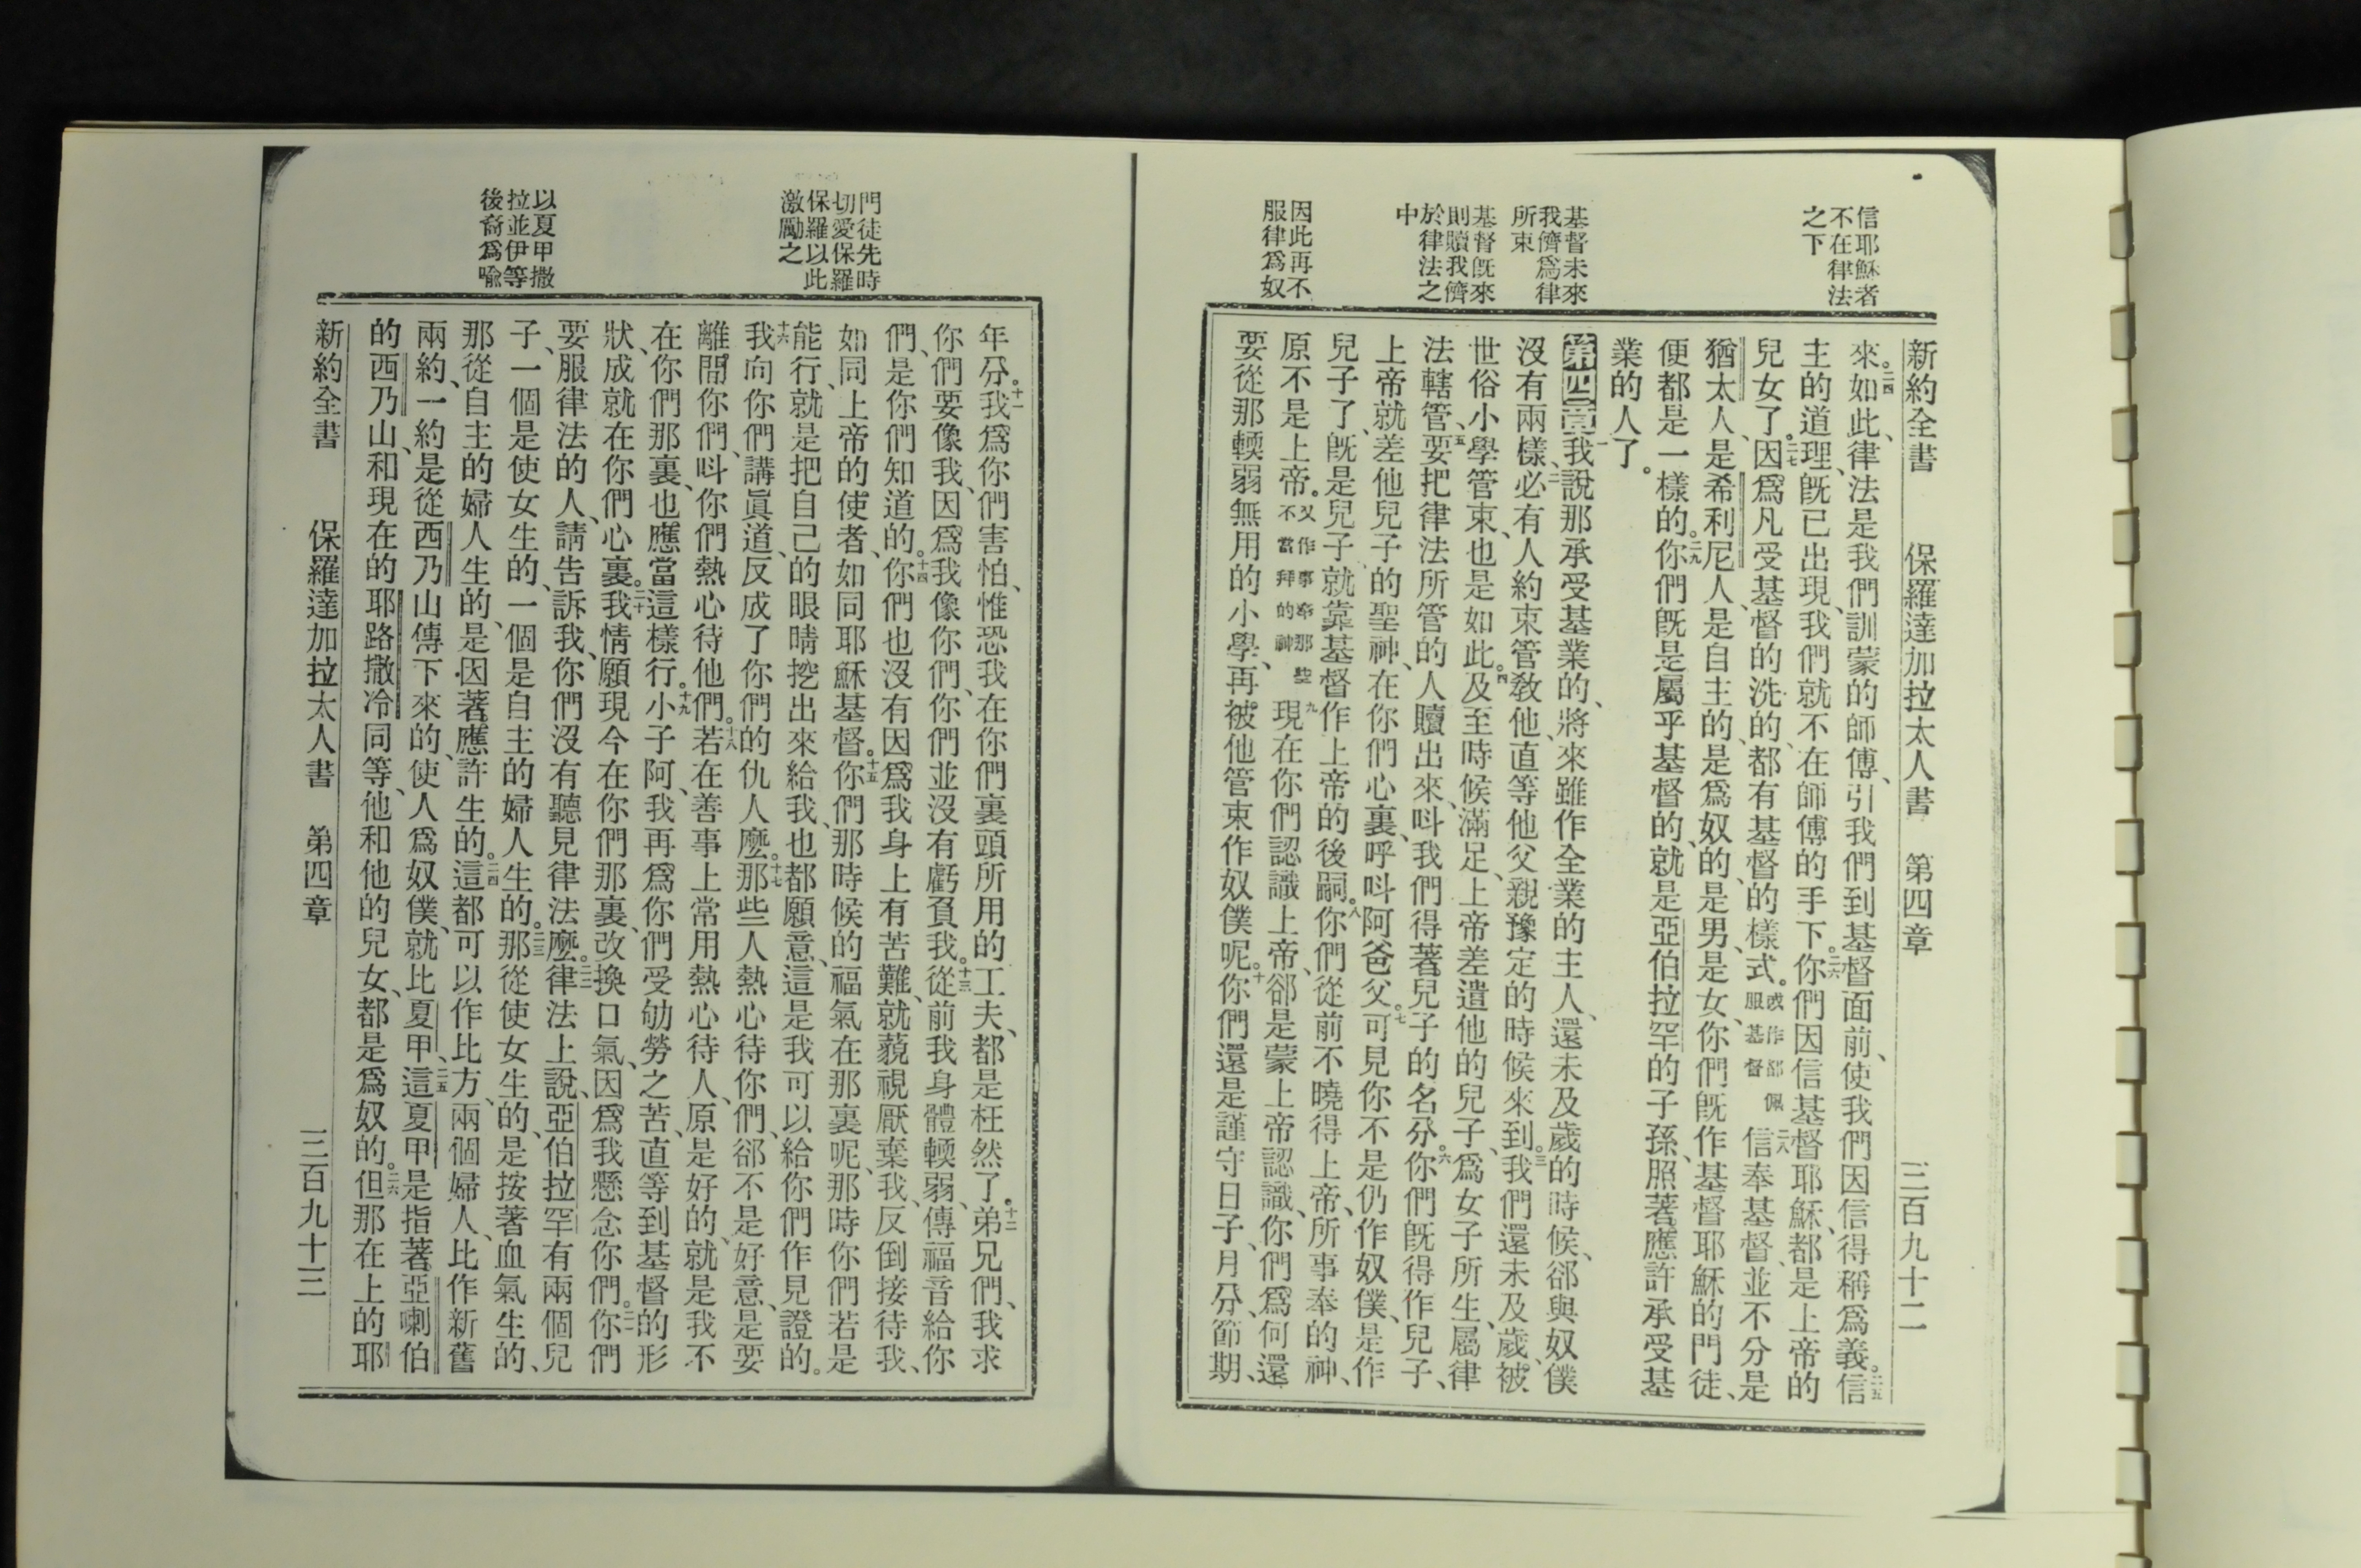 信耶穌者
不在律法
之下
基督未來
我儕爲律
所束
基督旣來
則贖我儕
於律法之
中
因此再不
服律爲奴
新約全書 保羅達加拉太人書 第四章 三百九十二
來。二四如此、律法是我們訓蒙的師傅、引我們到基督面前、使我們因信得稱爲義。二五信
主的道理、旣已出現、我們就不在師傅的手下。二六你們因信基督耶穌、都是上帝的
兒女了。二七因爲凡受基督的洗的、都有基督的樣式。或作都佩服基督二八信奉基督、並不分是
猶太人、是希利尼人、是自主的、是爲奴的、是男、是女、你們旣作基督耶穌的門徒、
便都是一樣的。二九你們旣是屬乎基督的、就是亞伯拉罕的子孫、照著應許承受基
業的人了。
第四章一我說那承受基業的、將來雖作全業的主人、還未及歲的時候、郤與奴僕
沒有兩樣、二必有人約束管敎他、直等他父親豫定的時候來到。三我們還未及歲、被
世俗小學管束、也是如此。四及至時候滿足、上帝差遣他的兒子、爲女子所生、屬律
法轄管、五要把律法所管的人贖出來、呌我們得著兒子的名分。六你們旣得作兒子、
上帝就差他兒子的聖神、在你們心裏、呼呌阿爸父。七可見你不是仍作奴僕、是作
兒子了、旣是兒子、就靠基督作上帝的後嗣。八你們從前不曉得上帝、所事奉的神、
原不是上帝。又作事奉那些不當拜的神九現在你們認識上帝、郤是蒙上帝認識、你們爲何還
要從那輭弱無用的小學、再被他管束作奴僕呢。十你們還是謹守日子、月分、節期、
門徒先時
切愛保羅
保羅以此
激勵之
以夏甲撒
拉並伊等
後裔爲喩
年分。十一我爲你們害怕、惟恐我在你們裏頭所用的工夫、都是枉然了。十二弟兄們、我求
你們要像我、因爲我像你們、你們並沒有虧負我。十三從前我身體輭弱、傳福音給你
們、是你們知道的。十四你們也沒有因爲我身上有苦難、就藐視厭棄我、反倒接待我、
如同上帝的使者、如同耶穌基督。十五你們那時候的福氣在那裏呢、那時你們若是
能行、就是把自己的眼睛挖出來給我、也都願意、這是我可以給你們作見證的。
十六我向你們講眞道、反成了你們的仇人麼。十七那些人熱心待你們、郤不是好意、是要
離間你們、呌你們熱心待他們。十八若在善事上常用熱心待人、原是好的、就是我不
在你們那裏、也應當這樣行。十九小子阿、我再爲你們受劬勞之苦、直等到基督的形
狀、成就在你們心裏。二十我情願現今在你們那裏、改換口氣、因爲我懸念你們。二一你們
要服律法的人、請告訴我、你們沒有聽見律法麼。二二律法上說、亞伯拉罕有兩個兒
子、一個是使女生的、一個是自主的婦人生的。二三那從使女生的、是按著血氣生的、
那從自主的婦人生的、是因著應許生的。二四這都可以作比方、兩個婦人、比作新舊
兩約、一約是從西乃山傳下來的、使人爲奴僕、就比夏甲、二五這夏甲是指著亞喇伯
的西乃山、和現在的耶路撒冷同等、他和他的兒女、都是爲奴的。二六但那在上的耶
新約全書 保羅達加拉太人書 第四章 三百九十三